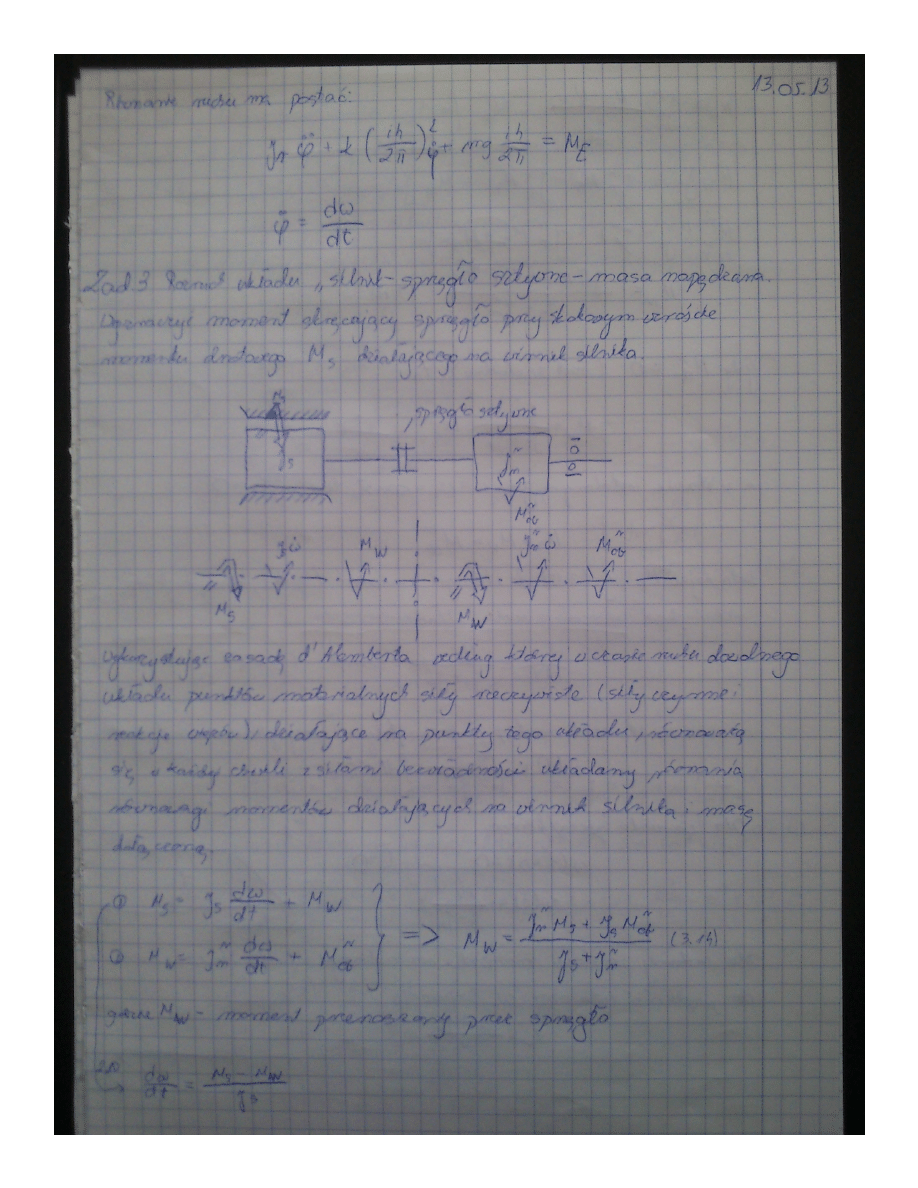 13.05.13
Równanie ruchu ma postać:
J_n φ̈ + k (ih/2π)² φ̇ + mg ih/2π = M_E
φ̈ = dω/dt
Zad 3 Rozruch układu „silnik - sprzęgło sztywne - masa napędzana.
Wyznaczyć moment skręcający sprzęgło przy skokowym wzroście
momentu obrotowego M_S działającego na wirnik silnika.
M_S
sprzęgło sztywne
J_S
J̃_m
M̃_ob
J_S ω̇ M_W J̃_m ω̇ M̃_ob
M_S M_W
wykorzystując zasadę d'Alemberta według której w czasie ruchu dowolnego
układu punktów materialnych siły rzeczywiste (siły czynne i
reakcje więzów), działające na punkty tego układu, równoważą
się w każdej chwili z siłami bezwładności układamy równania
równowagi momentów działających na wirnik silnika i masę
dołączoną.
① M_S = J_S dω/dt + M_W
② M_W = J̃_m dω/dt + M̃_ob
=> M_W = (J̃_m M_S + J_S M̃_ob)/(J_S + J̃_m) (3.14)
gdzie M_W - moment przenoszony przez sprzęgło
dω/dt = (M_S - M_W)/J_S